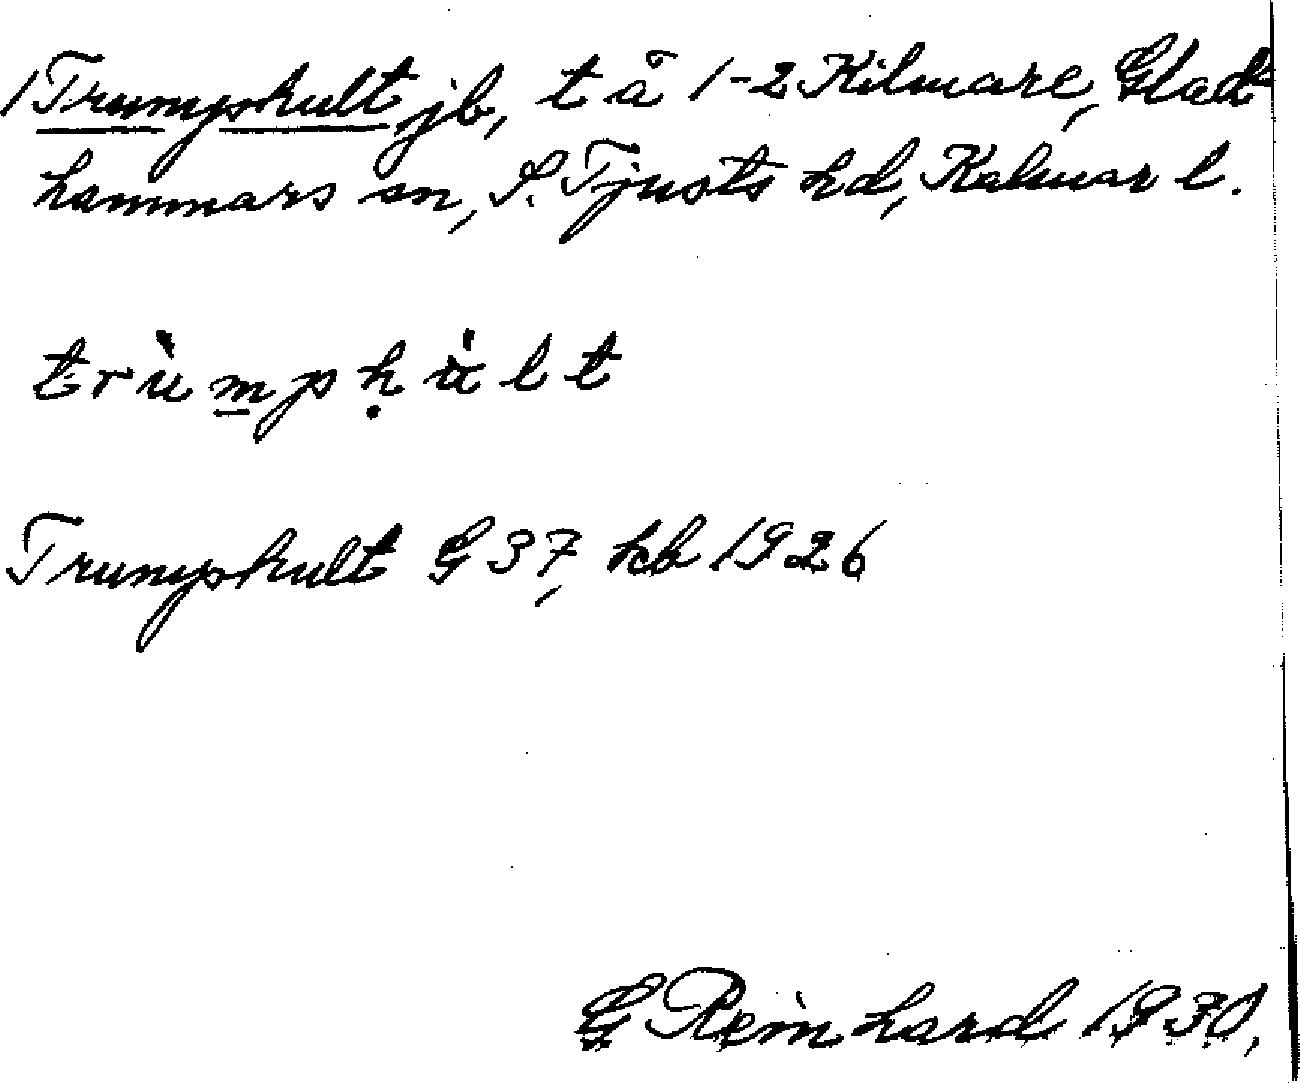 1 Trumpshult jb, t å 1-2 Kilmare, Glad-
hammars sn, S. Tjusts hd, Kalmar l.
trùmpḥùlt
Trumpshult G 37, hb 1926
G Reinhard 1930,